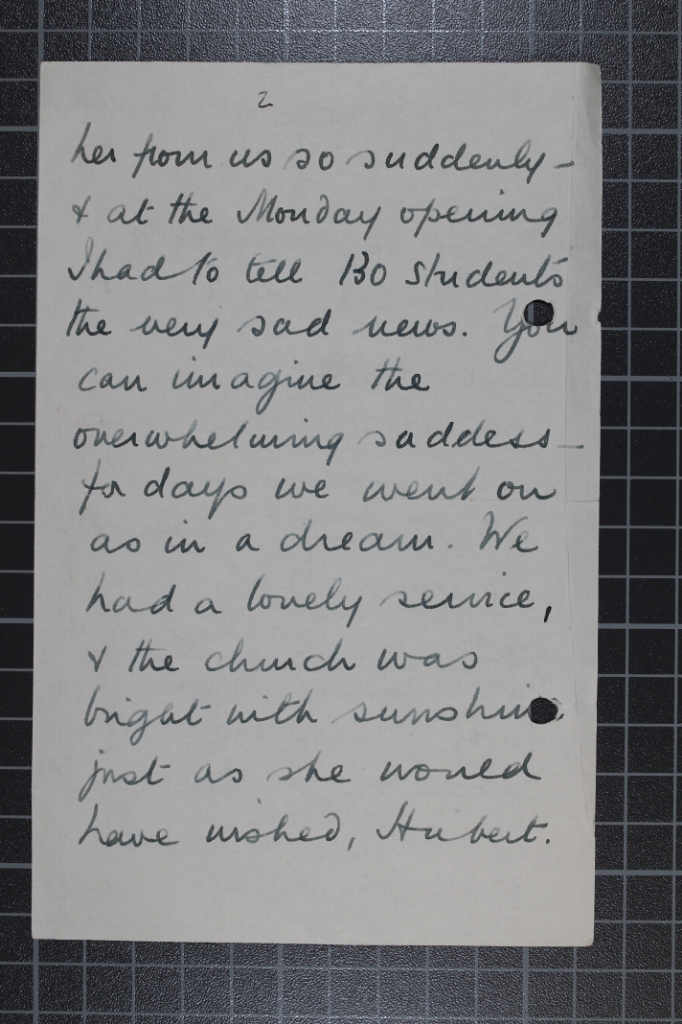 2
her from us so suddenly –
& at the Monday opening
I had to tell 130 students
the very sad news. You
can imagine the
overwhelming saddess –
for days we went on
as in a dream. We
had a lovely service,
& the church was
bright with sunshine
just as she would
have wished, Hubert.